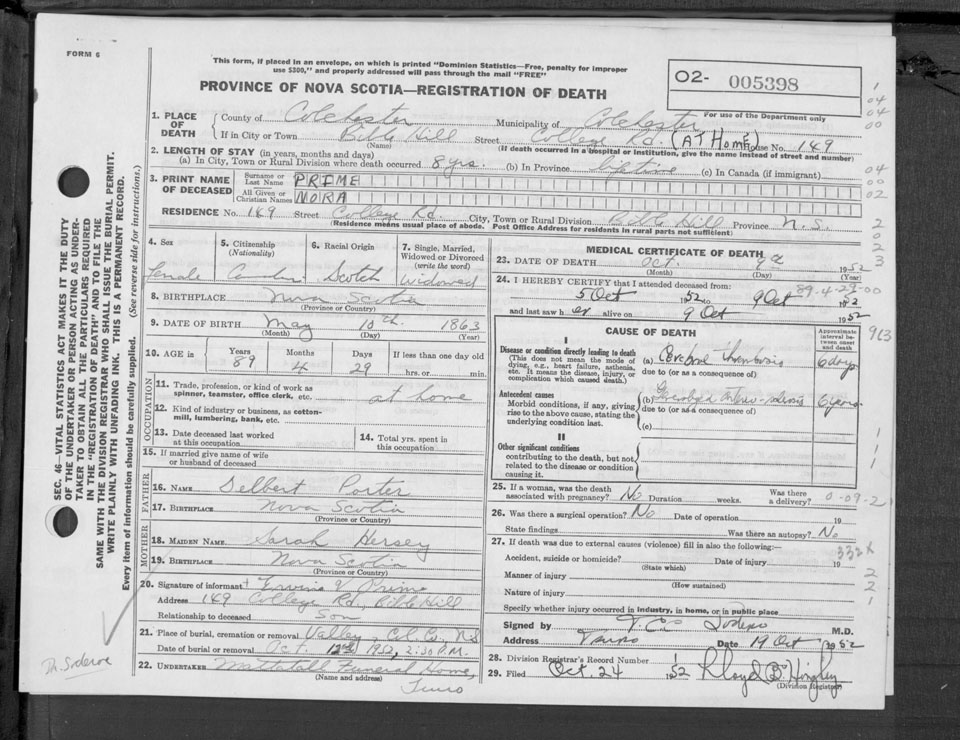 FORM 6
This form, if placed in an envelope, on which is printed "Dominion Statistics—Free, penalty for improper
use $300," and properly addressed will pass through the mail "FREE"
PROVINCE OF NOVA SCOTIA—REGISTRATION OF DEATH
O2- 005398
For use of the Department only
1. PLACE OF DEATH
County of Colchester Municipality of Colchester
If in City or Town Bible Hill Street College Rd. (AT HOME) House No. 149
(Name) (If death occurred in a hospital or institution, give the name instead of street and number)
2. LENGTH OF STAY (in years, months and days)
(a) In City, Town or Rural Division where death occurred 8 yrs. (b) In Province lifetime (c) In Canada (if immigrant)
3. PRINT NAME OF DECEASED
Surname or Last Name PRIME
All Given or Christian Names NORA
RESIDENCE No. 149 Street College Rd. City, Town or Rural Division Bible Hill Province N.S.
(Residence means usual place of abode. Post Office Address for residents in rural parts not sufficient)
4. Sex
5. Citizenship (Nationality)
6. Racial Origin
7. Single, Married, Widowed or Divorced (write the word)
female Scotch widowed
8. BIRTHPLACE Nova Scotia
(Province or Country)
9. DATE OF BIRTH May 10th 1863
(Month) (Day) (Year)
10. AGE in Years Months Days If less than one day old
89 4 29 hrs. or min.
OCCUPATION
11. Trade, profession, or kind of work as spinner, teamster, office clerk, etc. at home
12. Kind of industry or business, as cotton-mill, lumbering, bank, etc.
13. Date deceased last worked at this occupation
14. Total yrs. spent in this occupation
15. If married give name of wife or husband of deceased
FATHER
16. NAME Delbert Porter
17. BIRTHPLACE Nova Scotia
(Province or Country)
MOTHER
18. MAIDEN NAME Sarah Hersey
19. BIRTHPLACE Nova Scotia
(Province or Country)
20. Signature of informant Prime
Address 149 College Rd, Bible Hill
Relationship to deceased Son
21. Place of burial, cremation or removal Valley, Col. Co., N.S
Date of burial or removal Oct. 12th 1952, 2:30 P.M.
22. UNDERTAKER Funeral Home,
(Name and address) Truro
MEDICAL CERTIFICATE OF DEATH
23. DATE OF DEATH Oct. 9th 1952
(Month) (Day)
89-4-29-00
24. I HEREBY CERTIFY that I attended deceased from:
5 Oct 1952 to 9 Oct 1952
and last saw h er alive on 9 Oct 1952
CAUSE OF DEATH
Approximate interval between onset and death
I
Disease or condition directly leading to death
(This does not mean the mode of dying, e.g., heart failure, asthenia, etc. It means the disease, injury, or complication which caused death.)
(a) Cerebral thrombosis 6 days
due to (or as a consequence of)
Antecedent causes
Morbid conditions, if any, giving rise to the above cause, stating the underlying condition last.
(b) 6 years
due to (or as a consequence of)
(c)
II
Other significant conditions
contributing to the death, but not related to the disease or condition causing it.
25. If a woman, was the death associated with pregnancy? No Duration weeks. Was there a delivery?
0-09-2
26. Was there a surgical operation? No Date of operation 19
State findings Was there an autopsy? No
27. If death was due to external causes (violence) fill in also the following:—
332X
Accident, suicide or homicide? Date of injury 19
(State which)
Manner of injury
(How sustained)
Nature of injury
Specify whether injury occurred in industry, in home, or in public place
Signed by M.D.
Address Truro Date 19 Oct 1952
28. Division Registrar's Record Number
29. Filed Oct. 24 1952
(Division Registrar)
SEC. 46—VITAL STATISTICS ACT MAKES IT THE DUTY
OF THE UNDERTAKER OR PERSON ACTING AS UNDER-
TAKER TO OBTAIN ALL THE PARTICULARS REQUIRED
IN THE "REGISTRATION OF DEATH" AND TO FILE THE
SAME WITH THE DIVISION REGISTRAR WHO SHALL ISSUE THE BURIAL PERMIT.
WRITE PLAINLY WITH UNFADING INK. THIS IS A PERMANENT RECORD.
Every item of information should be carefully supplied. (See reverse side for instructions.)
1
04
04
00
04
00
02
2
0
2
3
963
1
1
1
2
2
1